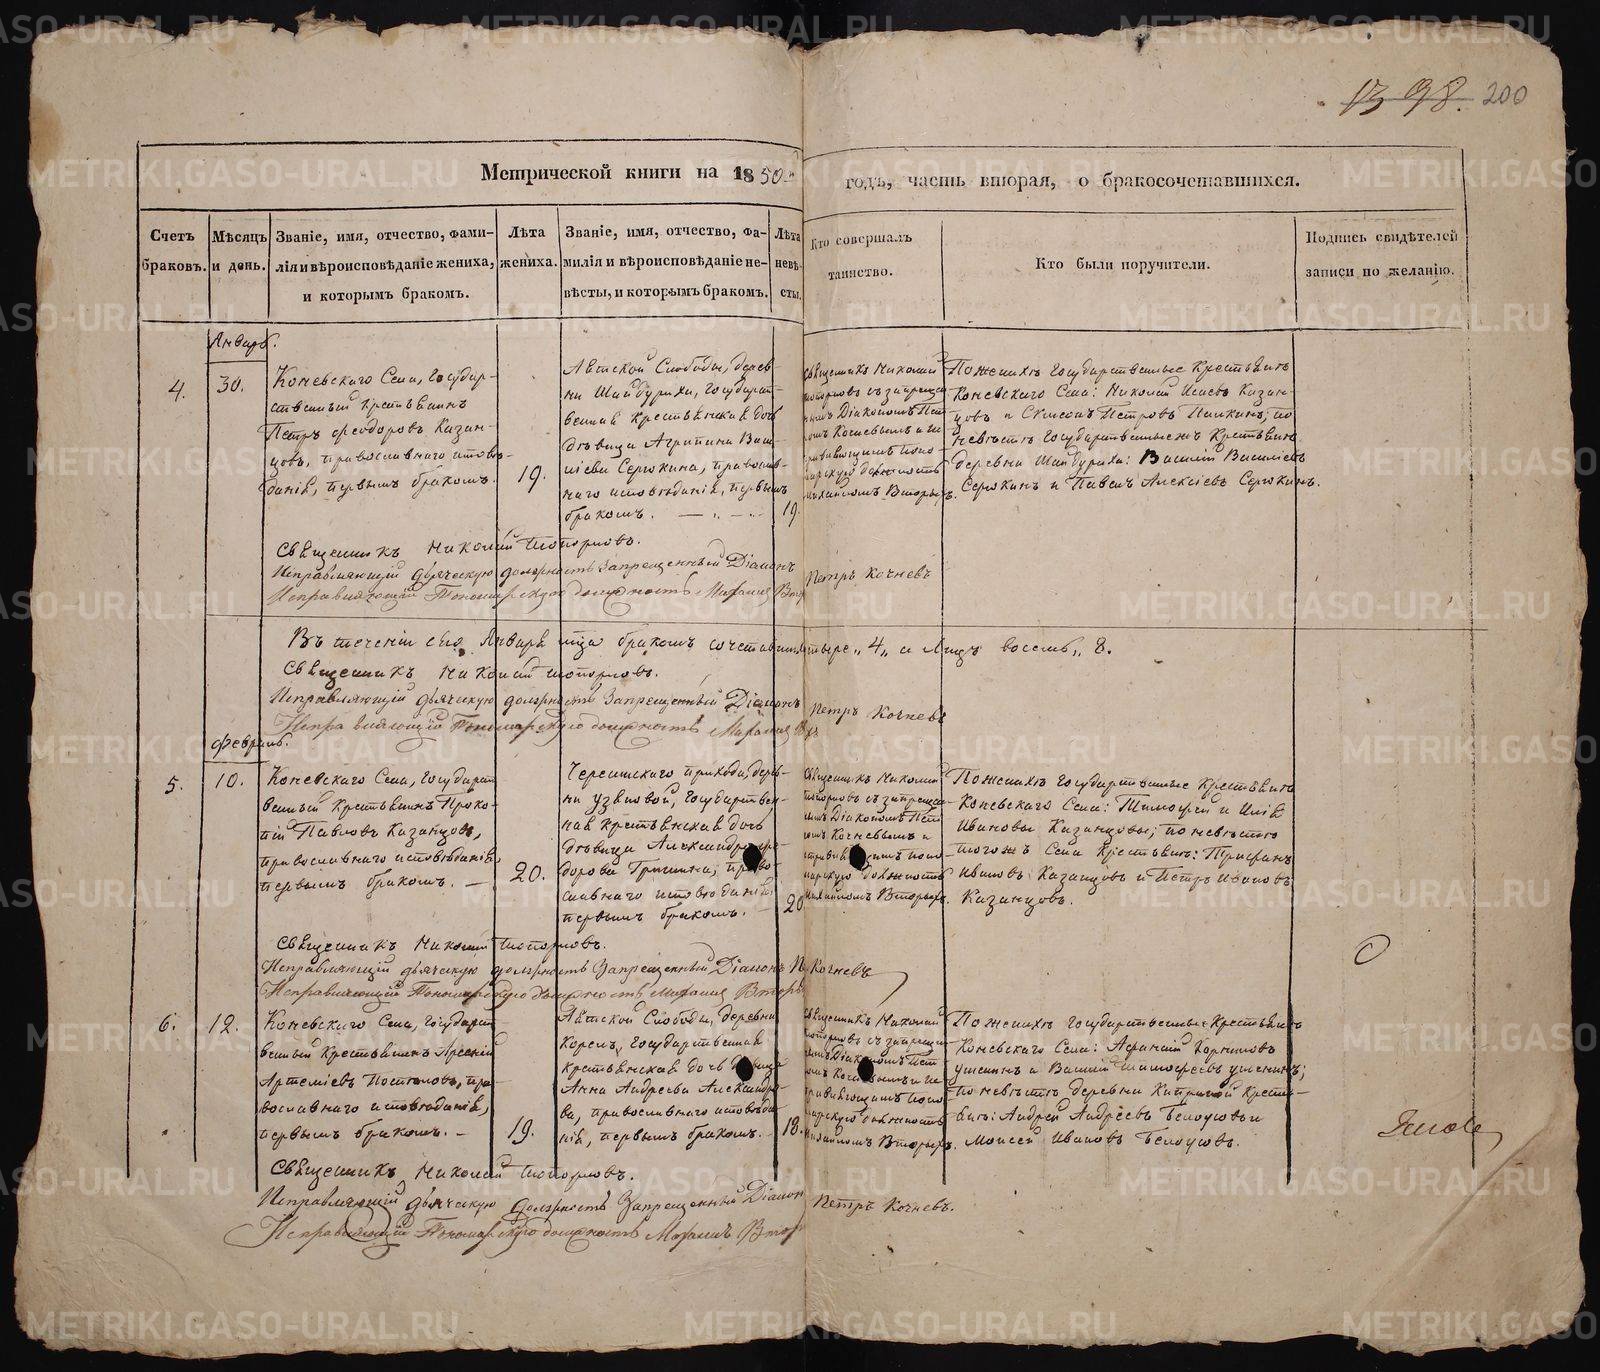 13 98. 200
Метрической книги на 1850й годъ, часть вторая, о бракосочетавшихся.
Счетъ браковъ.
Мѣсяцъ и день.
Званіе, имя, отчество, фами-
лія и вѣроисповѣданіе жениха,
и которымъ бракомъ.
Лѣта
жениха.
Званіе, имя, отчество, фа-
милія и вѣроисповѣданіе не-
вѣсты, и которымъ бракомъ.
Лѣта
невѣ-
сты.
Кто совершалъ
таинство.
Кто были поручители.
Подпись свидѣтелей
записи по желанію.
Январь.
4.
30.
Коневскаго Села, Государ-
ственный Крестьянинъ
Петръ Феодоровъ Казан-
цовъ, православнаго исповѣ-
данія, первымъ бракомъ.
19.
Аятской Слободы, дерев
ни Шайдурихи, Государст-
венная Крестьянская дочь
дѣвица Агрипина Васи
ліева Серюкина, православ-
наго исповѣданія, первымъ
бракомъ.
19.
Священникъ Николай
Топорковъ съ запрещен
нымъ Діакономъ Пет
ромъ Кочневымъ и ис
правляющимъ поно-
марскую должность
Михаиломъ Вторыхъ.
По женихѣ Государственные Крестьяне
Коневскаго Села: Николай Исаевъ Казан-
цовъ и Симеонъ Петровъ Пилкинъ; по
невѣстѣ Государственные жъ Крестьяне
деревни Шайдурихи: Василій Василіевъ
Серюкинъ и Павелъ Алексіевъ Серюкинъ.
Священникъ Николай Топорковъ.
Исправляющій дьяческую должность Запрещенный Діаконъ Петръ Кочневъ
Исправляющій Пономарскую должность Михаилъ Втор
Въ теченіи сего Января мца бракомъ сочетавшихся четыре „4„ и Лицъ восемь „8.
Священникъ Николай Топорковъ.
Исправляющій дьяческую должность Запрещенный Діаконъ Петръ Кочневъ
Исправляющій Пономарскую должность Михаилъ
Февраль.
5.
10.
Коневскаго Села, Государст
венный Крестьянинъ Проко-
пій Павловъ Казанцовъ,
православнаго исповѣданія,
первымъ бракомъ.
20.
прихода, дерев-
ни Узяновой, Государствен-
ная крестьянская дочь
дѣвица Александра
дорова Гришина, право-
славнаго исповѣданія
первымъ бракомъ.
20
Священникъ Николай
Топорковъ съ запрещен-
нымъ Діакономъ Пет
ромъ Кочневымъ и
исправляющимъ поно-
марскую должность
Михаиломъ Вторыхъ.
По женихѣ Государственные Крестьяне
Коневскаго Села: Тимофей и Илія
Ивановы Казанцовы; по невѣстѣ
тогожъ Села Крестьяне: Трифанъ
Ивановъ Казанцовъ и Петръ Ивановъ
Казанцовъ.
Священникъ Николай Топорковъ.
Исправляющій дьяческую должность Запрещенный Діаконъ П Кочневъ
Исправляющій Пономарскую должность Михаилъ Вторы
6.
12.
Коневскаго Села, Государст
венный Крестьянинъ Арсеній
Артеміевъ Постыловъ, пра-
вославнаго исповѣданія,
первымъ бракомъ.
19.
Аятской Слободы, деревни
Корелъ, Государственная
крестьянская дочь дѣвица
Анна Андреева Александро-
ва, православнаго исповѣда-
нія, первымъ бракомъ.
18.
Священникъ Николай
Топорковъ съ запрещен
нымъ Діакономъ Пет
ромъ Кочневымъ и ис
правляющимъ поно
марскую должность
Михаиломъ Вторыхъ.
По женихѣ Государственные Крестьяне
Коневскаго Села: Афанасій Корниловъ
и Василій Тимофеевъ
по невѣстѣ деревни Киприной Кресть-
яне: Андрей Андреевъ Белоусовъ и
Моисей Ивановъ Белоусовъ.
Священникъ Николай Топорковъ.
Исправляющій дьяческую должность Запрещенный Діакон Петръ Кочневъ.
Исправляющій Пономарскую должность Михаилъ Втор
METRIKI.GASO-URAL.RU